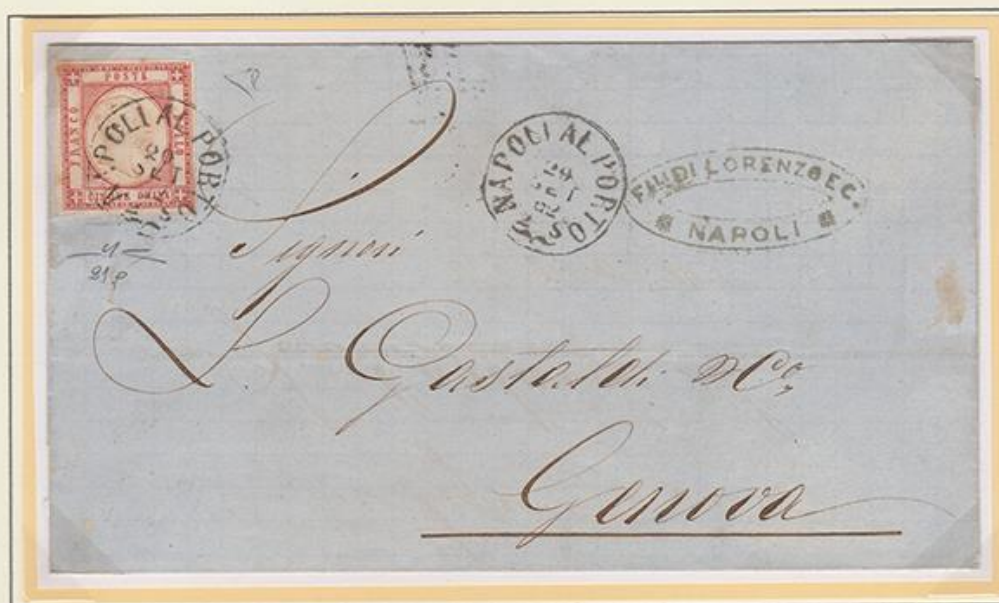 POSTE
FRANCO
NAPOLI AL PORTO
NAPOLI AL PORTO
29
SET
62
F.LLI DI LORENZO E C.
NAPOLI
Signori
L. Gastaldi & Co
Genova